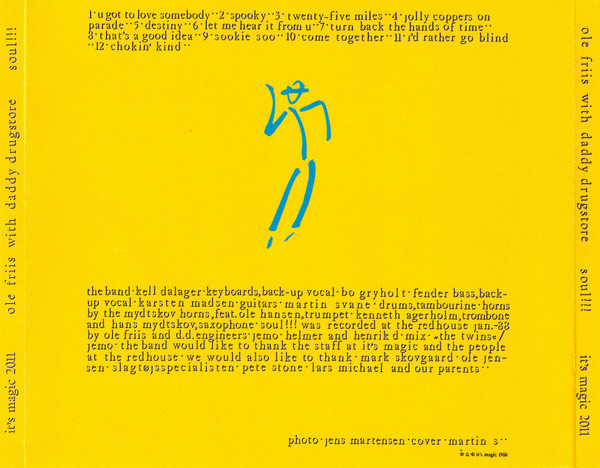 1·u got to love somebody··2·spooky··3·twenty-five miles··4·jolly coppers on
parade··5·destiny··6·let me hear it from u··7·turn back the hands of time··
8·that's a good idea··9·sookie soo··10·come together··11·i'd rather go blind
··12·chokin' kind··
ole friis with daddy drugstore soul!!!
it's magic 2011
the band·kell dalager·keyboards,back-up vocal·bo gryholt·fender bass,back-
up vocal·karsten madsen·guitars·martin svane·drums,tambourine·horns
by the mydtskov horns,feat.ole hansen,trumpet·kenneth agerholm,trombone
and hans mydtskov,saxophone·soul!!! was recorded at the redhouse jan.-88
by ole friis and d.d.engineers·jemo·helmer and henrik d·mix·-the twins-/
jemo·the band would like to thank the staff at it's magic and the people
at the redhouse·we would also like to thank·mark skovgaard·ole jen-
sen·slagtøjsspecialisten·pete stone·lars michael and our parents··
photo·jens martensen·cover·martin s··
it's magic 1988
ole friis with daddy drugstore soul!!!
it's magic 2011